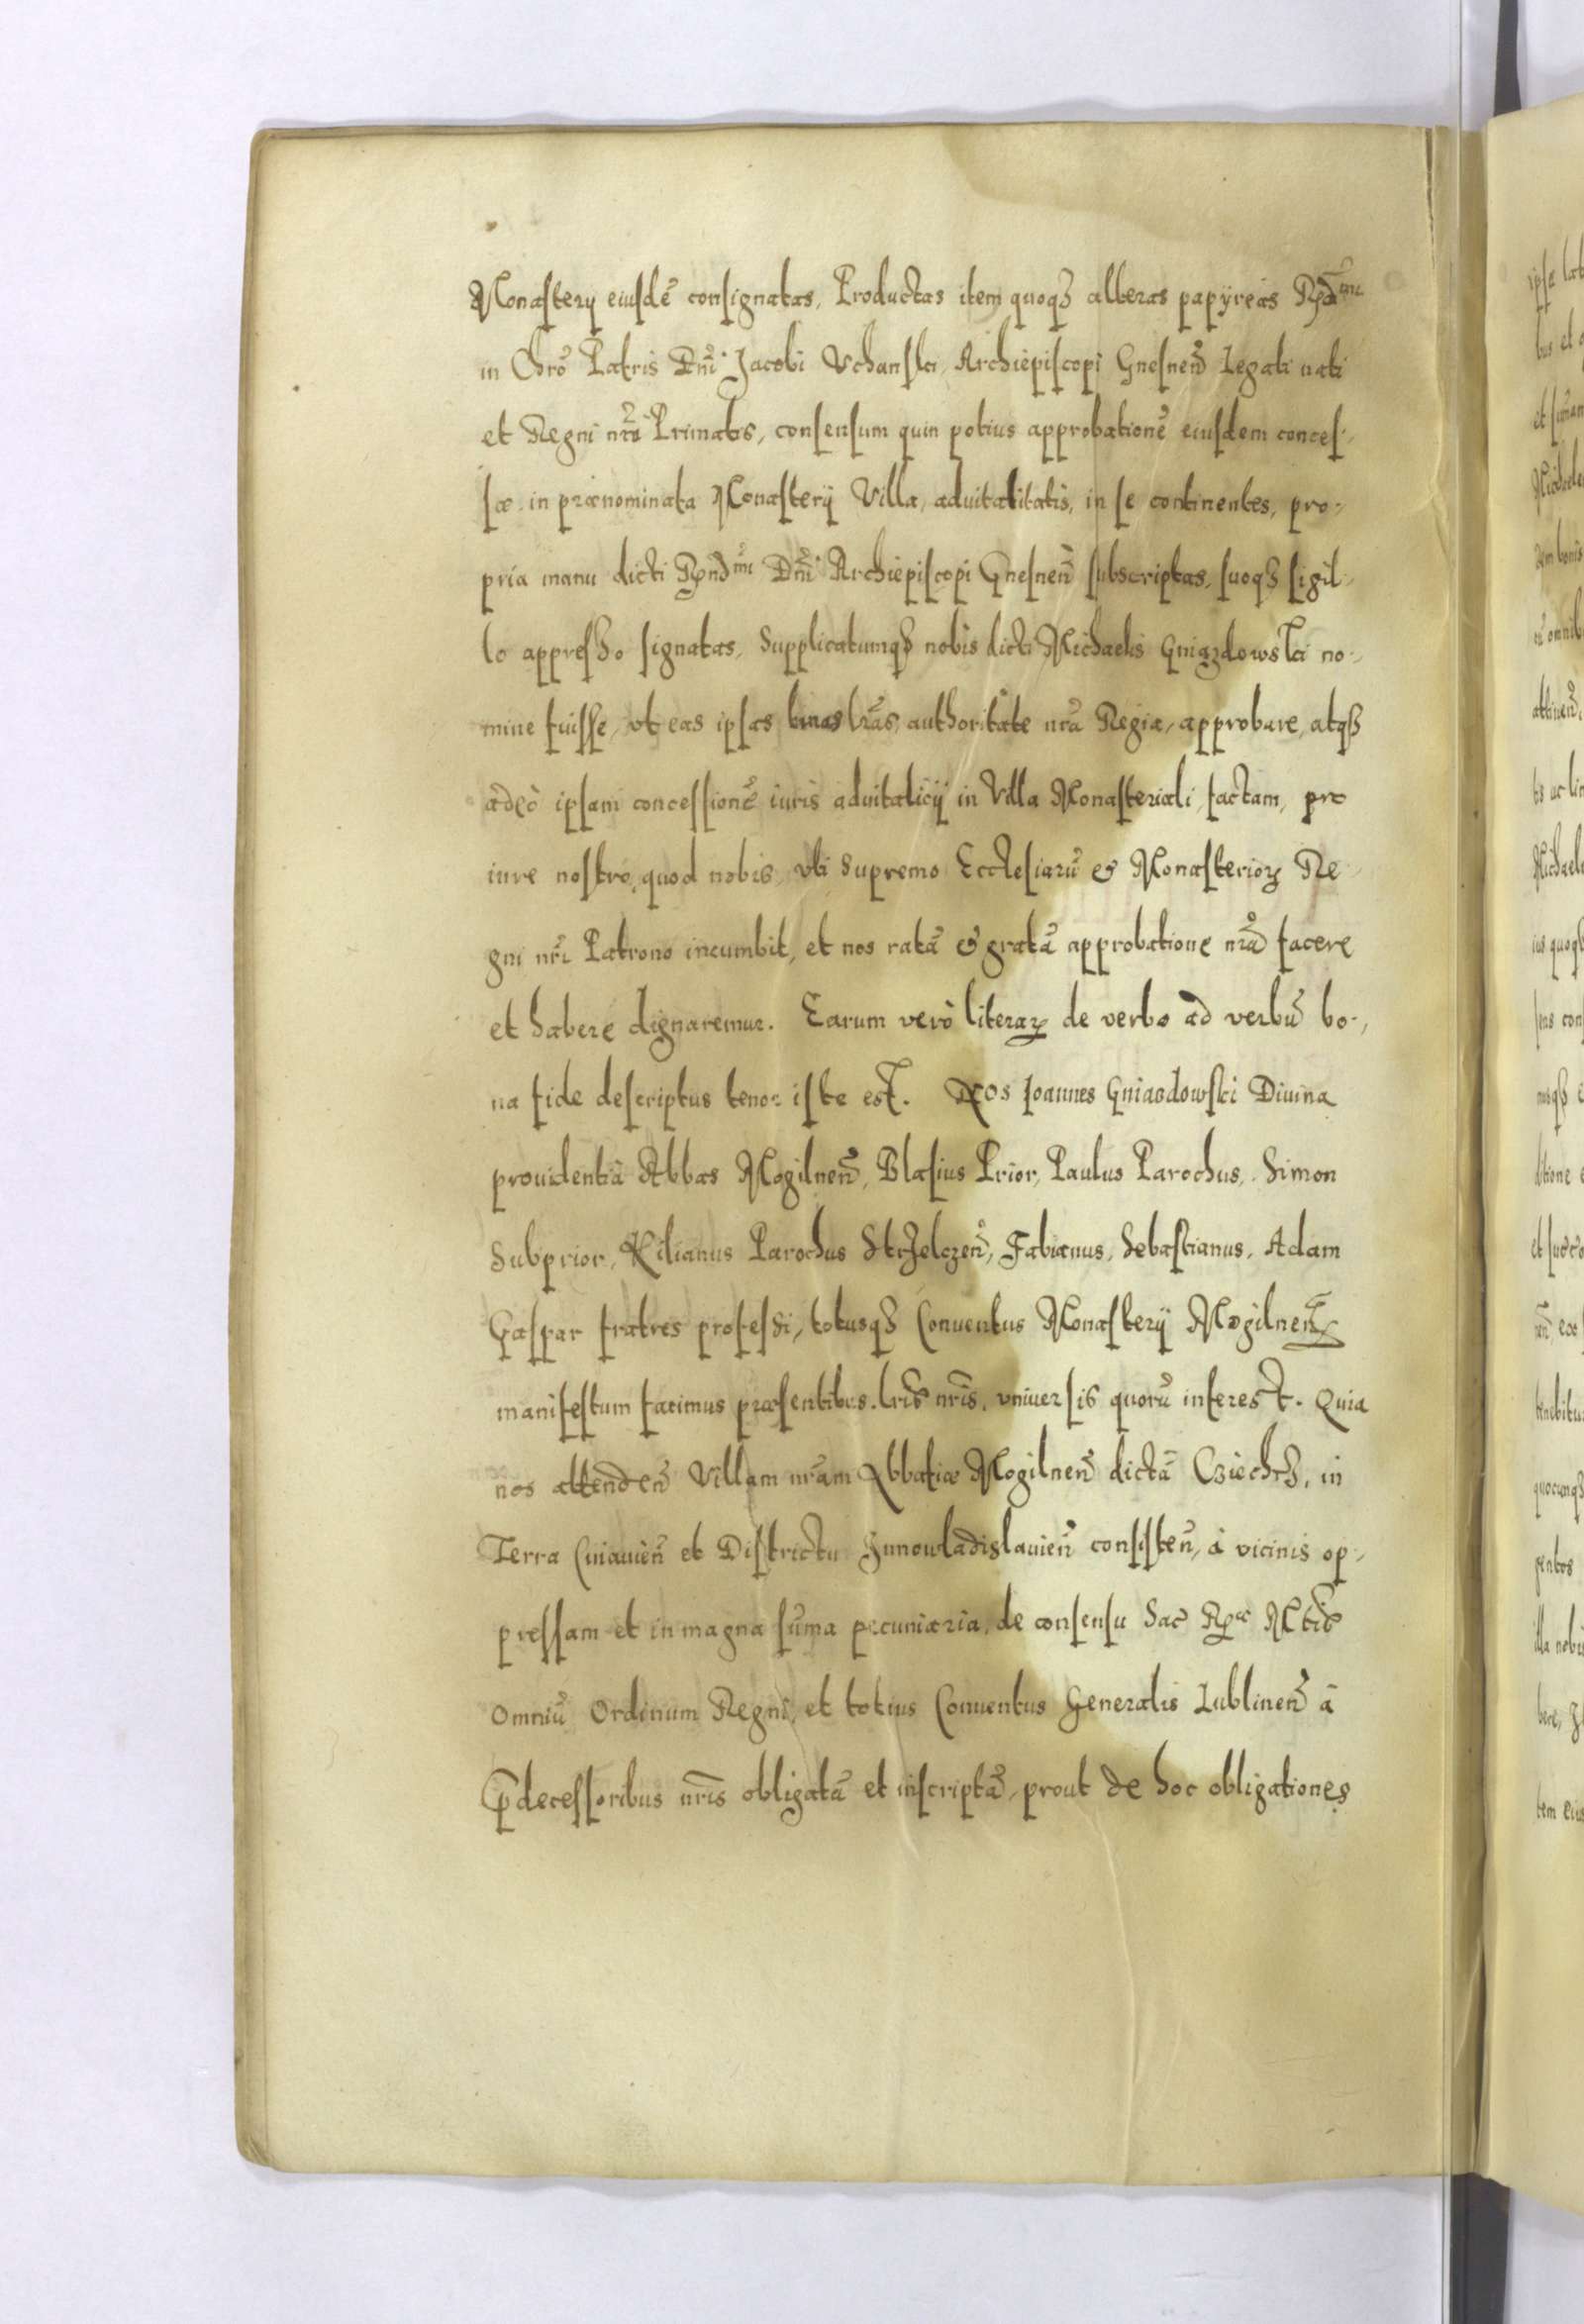 Monasterÿ eiusdē consignatas, Productas item quoqꝫ alteras papÿreas Rṇd̄mi
in Chrō Patris Dn̄i Jacobi Vchanski, Archiepiscopi Gnesnen̄ Legati nati
et Regni nr̄i Primatis, consensum quin potius approbationē eiusdem conces-
sæ in prænominata Monasterÿ Villa, aduitalitatis, in se continentes, pro-
pria manu dicti Rṇd̄mi Dn̄i Archiepiscopi Gnesnen̄ subscriptas, suoqꝫ sigil-
lo appresso signatas, Supplicatumqꝫ nobis dicti Michaelis Gniazdowski no-
mine fuisse, vt eas ipsas binas lr̄as, authoritate nr̄a Regia, approbare, atqꝫ
adeò ipsam concessionē iuris aduitalicÿ in Villa Monasteriali factam, pro
iure nostro, quod nobis, vti Supremo Ecclesiarū & Monasterioꝝ Re-
gni nr̄i Patrono incumbit, et nos ratā & gratā approbatione nr̄a facere
et habere dignaremur. Earum verò literaꝝ de verbo ad verbū bo-
na fide descriptus tenor iste est. Nos Joannes Gniasdowski Diuina
prouidentia Abbas Mogilnen̄, Blasius Prior, Paulus Parochus, Simon
Subprior, Kilianus Parochus Strzelczen̄, Fabianus, Sebastianus, Adam
Gaspar fratres professi, totusqꝫ Conuentus Monasterÿ Mogilnen̄
manifestum facimus præsentibus lr̄is nr̄is, vniuersis quorū interest. Quia
nos attenden̄ Villam nr̄am Abbatiæ Mogilnen̄ dictā Cziechrz, in
Terra Cuiauien̄ et Districtu Junowladislauien̄ consisten̄, à vicinis op-
pressam et in magna sūma pecuniaria, de consensu Sac̄ Rꝫæ Mtis
Omniū Ordinum Regni, et totius Conuentus Generalis Lublinen̄ à
Pꝛ̄decessoribus nr̄is obligatā et inscriptā, prout de hoc obligationes